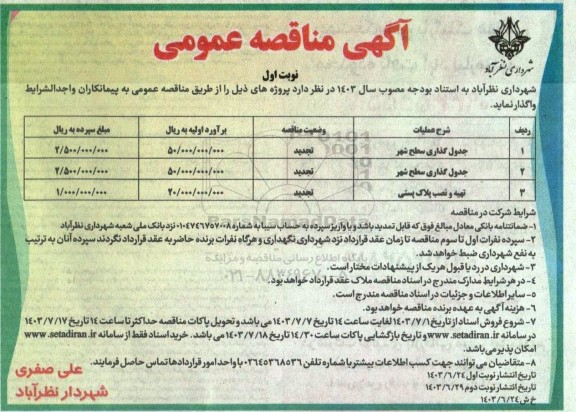 آگهی مناقصه عمومی
شهرداری نظرآباد
نوبت اول
شهرداری نظرآباد به استناد بودجه مصوب سال ۱۴۰۳ در نظر دارد پروژه های ذیل را از طریق مناقصه عمومی به پیمانکاران واجدالشرایط
واگذار نماید.
ردیف شرح عملیات وضعیت مناقصه برآورد اولیه به ریال مبلغ سپرده به ریال
۱ جدول گذاری سطح شهر تجدید ۵۰/۰۰۰/۰۰۰/۰۰۰ ۲/۵۰۰/۰۰۰/۰۰۰
۲ جدول گذاری سطح شهر تجدید ۵۰/۰۰۰/۰۰۰/۰۰۰ ۲/۵۰۰/۰۰۰/۰۰۰
۳ تهیه و نصب پلاک پستی تجدید ۲۰/۰۰۰/۰۰۰/۰۰۰ ۱/۰۰۰/۰۰۰/۰۰۰
شرایط شرکت در مناقصه
۱- ضمانتنامه بانکی معادل مبالغ فوق که قابل تمدید باشد و یا واریز سپرده به حساب سیبا به شماره ۰۱۰۴۷۴۶۷۵۷۰۰۸ نزد بانک ملی شعبه شهرداری نظرآباد
۲- سپرده نفرات اول تا سوم مناقصه تا زمان عقد قرارداد نزد شهرداری نگهداری و هرگاه نفرات برنده حاضر به عقد قرارداد نگردند سپرده آنان به ترتیب
به نفع شهرداری ضبط خواهد شد.
۳- شهرداری در رد یا قبول هر یک از پیشنهادات مختار است.
۴- در هر شرایط مدارک مندرج در اسناد مناقصه ملاک عقد قرارداد خواهد بود.
۵- سایر اطلاعات و جزئیات در اسناد مناقصه مندرج است.
۶- هزینه آگهی به عهده برنده مناقصه خواهد بود.
۷- شروع فروش اسناد از تاریخ ۱۴۰۳/۷/۱ لغایت ساعت ۱۴ تاریخ ۱۴۰۳/۷/۷ می باشد و تحویل پاکات مناقصه حداکثر تا ساعت ۱۴ تاریخ ۱۴۰۳/۷/۱۷
در سامانه www.setadiran.ir و تاریخ بازگشایی پاکات ساعت ۱۴/۳۰ تاریخ ۱۴۰۳/۷/۱۸ می باشد. خرید اسناد فقط از سامانه www.setadiran.ir
امکان پذیر می باشد.
۸- متقاضیان می توانند جهت کسب اطلاعات بیشتر با شماره تلفن ۰۲۶۴۵۳۶۸۵۳۶ با واحد امور قراردادها تماس حاصل فرمایند.
تاریخ انتشار نوبت اول ۱۴۰۳/۶/۲۴
تاریخ انتشار نوبت دوم ۱۴۰۳/۶/۲۹
خ ش ۱۴۰۳/۶/۲۴
علی صفری
شهردار نظرآباد
ParsNamadData
پایگاه اطلاع رسانی مناقصه و مزایده